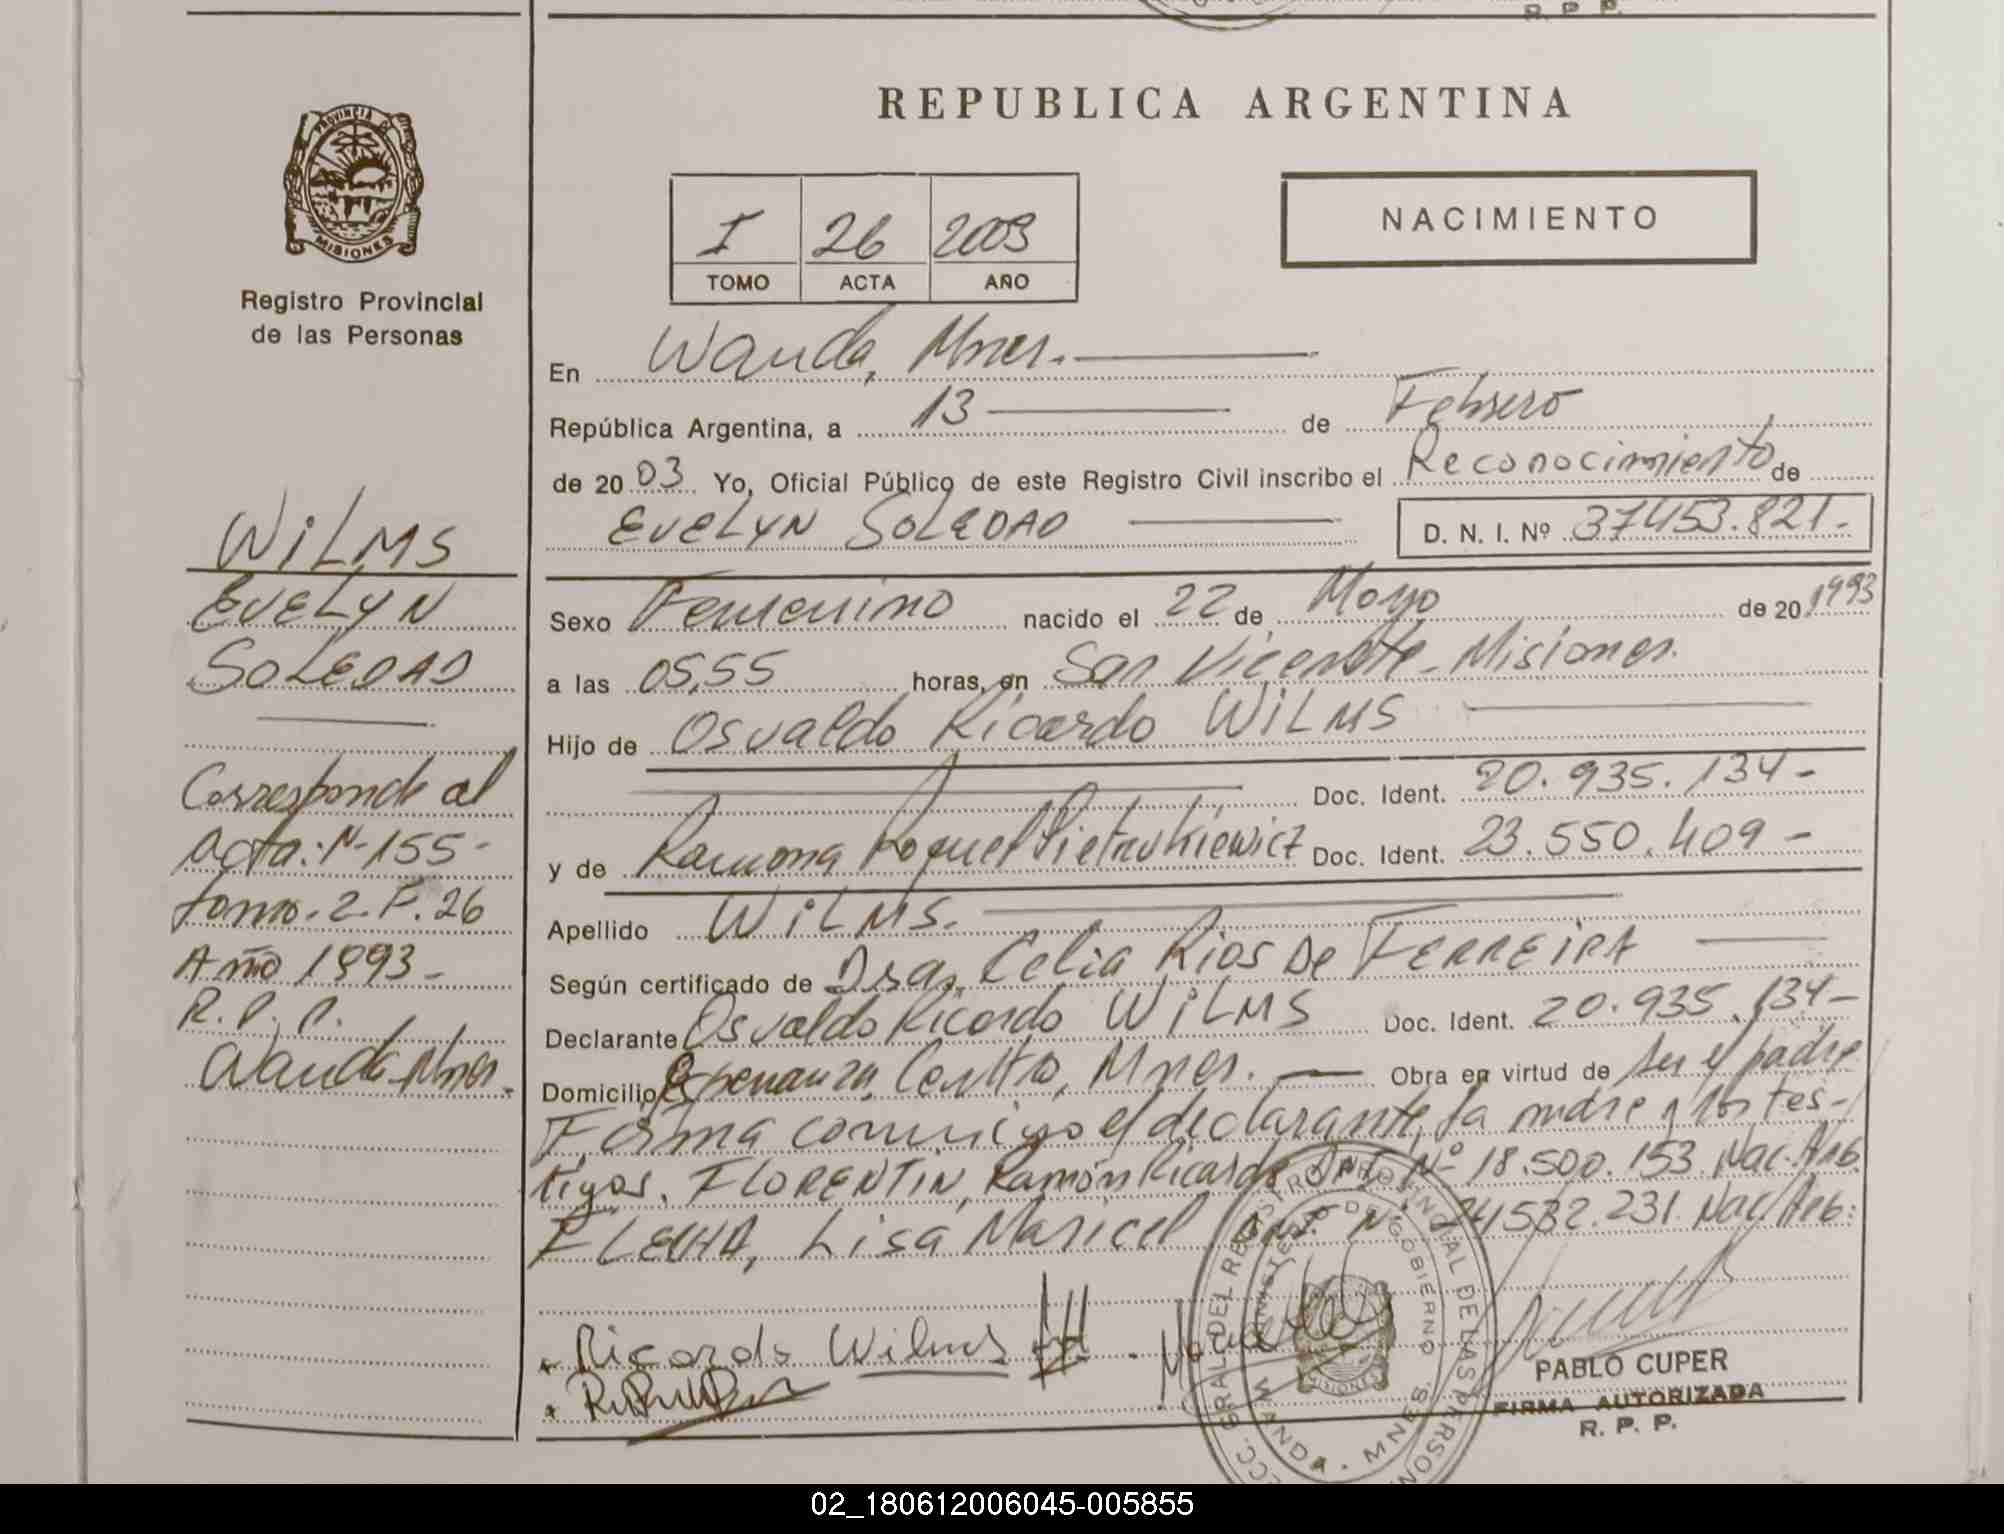 R. P. P.
REPUBLICA ARGENTINA
PROVINCIA DE
MISIONES
Registro Provincial
de las Personas
I 26 2003
TOMO ACTA AÑO
NACIMIENTO
En Wanda, Mnes.
República Argentina, a 13 de Febrero
de 2003 Yo, Oficial Público de este Registro Civil inscribo el Reconocimiento de
EVELYN SOLEDAD D. N. I. Nº 37453.821.-
Sexo Femenino nacido el 22 de Mayo de 20 1993
a las 05,55 horas, en San Vicente - Misiones.
Hijo de Osvaldo Ricardo WiLMS
Doc. Ident. 20.935.134-
y de Ramona Raquel Pietrukiewicz Doc. Ident. 23.550.409-
Apellido WiLMS.
Según certificado de Dra. Celia RIOS De FERREIRA
Declarante Osvaldo Ricardo WiLMS Doc. Ident. 20.935.134-
Domicilio Esperanza Centro, Mnes. Obra en virtud de ser el padre
Firma conmigo el declarante, la madre y los tes-
tigos. FLORENTIN, Ramón Ricardo DNI Nº 18.500.153. Nac. Arg.
FLEITA, Lisa Maricel DNI. Nº 24532.231. Nac. Arg.
WiLMS
EVELYN
SOLEDAD
Corresponde al
Acta: Nº 155-
tomo. 2. F. 26
Año 1993-
R. P. P.
Wanda-Mnes.
Ricardo Wilms
GRAL DEL REGISTRO PROVINCIAL DE LAS PERSON
MINISTERIO DE GOBIERNO
MISIONES
WANDA - MNES
PABLO CUPER
FIRMA AUTORIZADA
R. P. P.
02_180612006045-005855